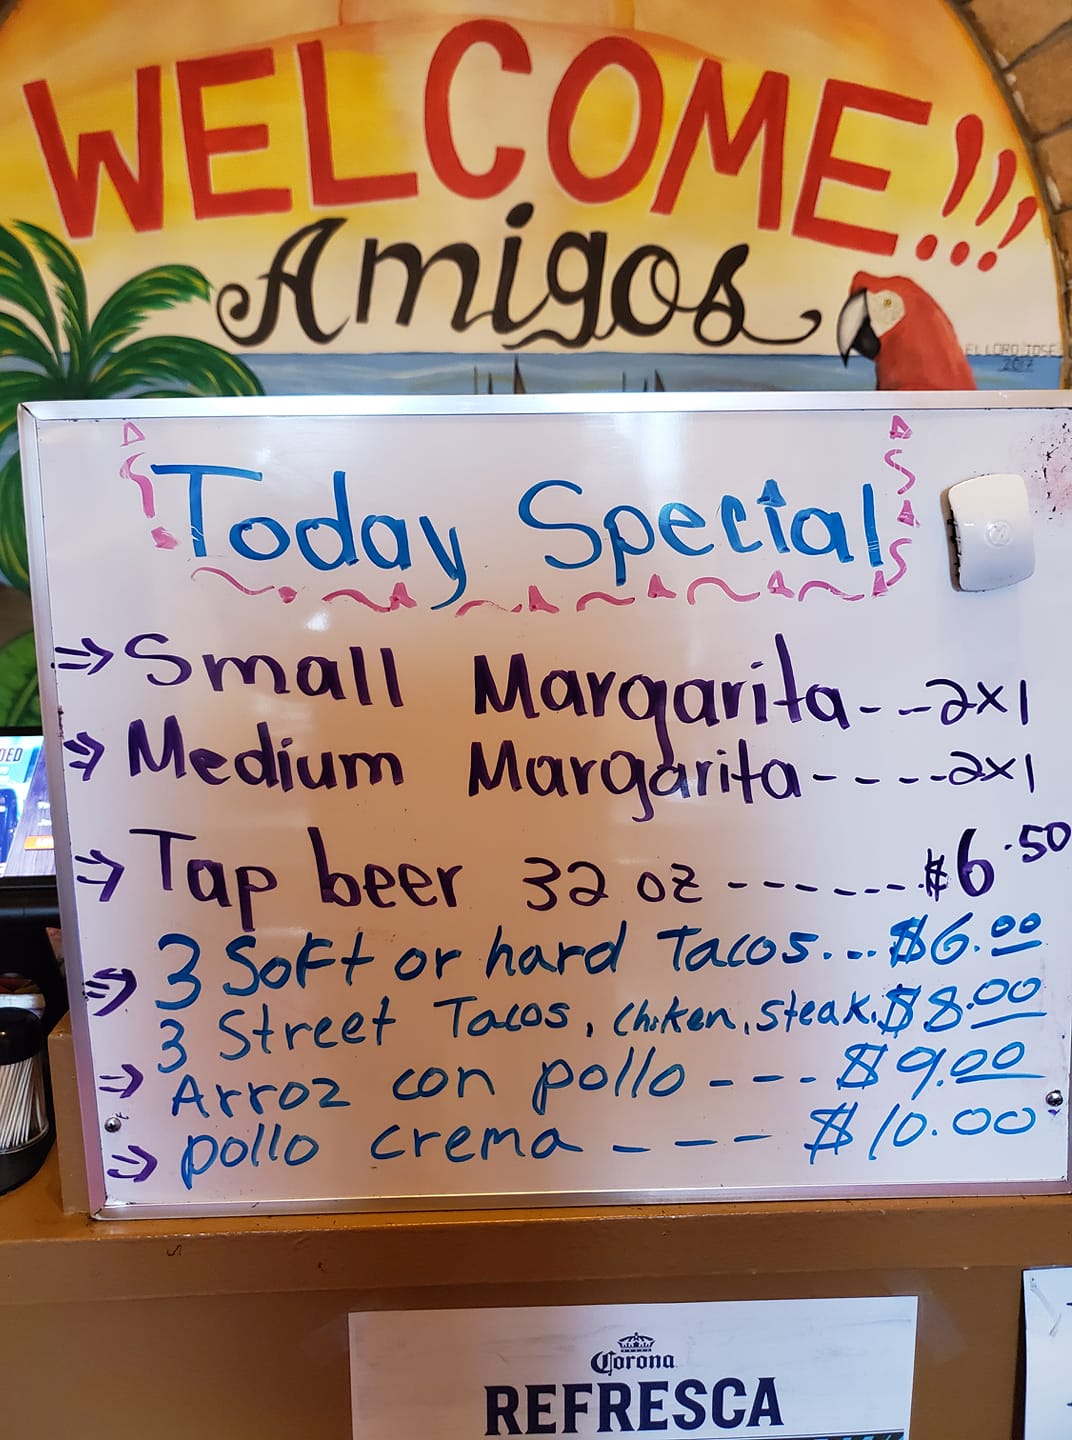 WELCOME!!!
Amigos
EL LORO JOSE
2017
Today Special
⇒ Small Margarita - - - 2x1
⇒ Medium Margarita - - - - - 2x1
⇒ Tap beer 32 oz - - - - - - - $6.50
⇒ 3 Soft or hard Tacos... $6.00
3 Street Tacos, Chiken, steak. $8.00
⇒ Arroz con pollo - - - - $9.00
⇒ pollo crema - - - - $10.00
Corona
REFRESCA